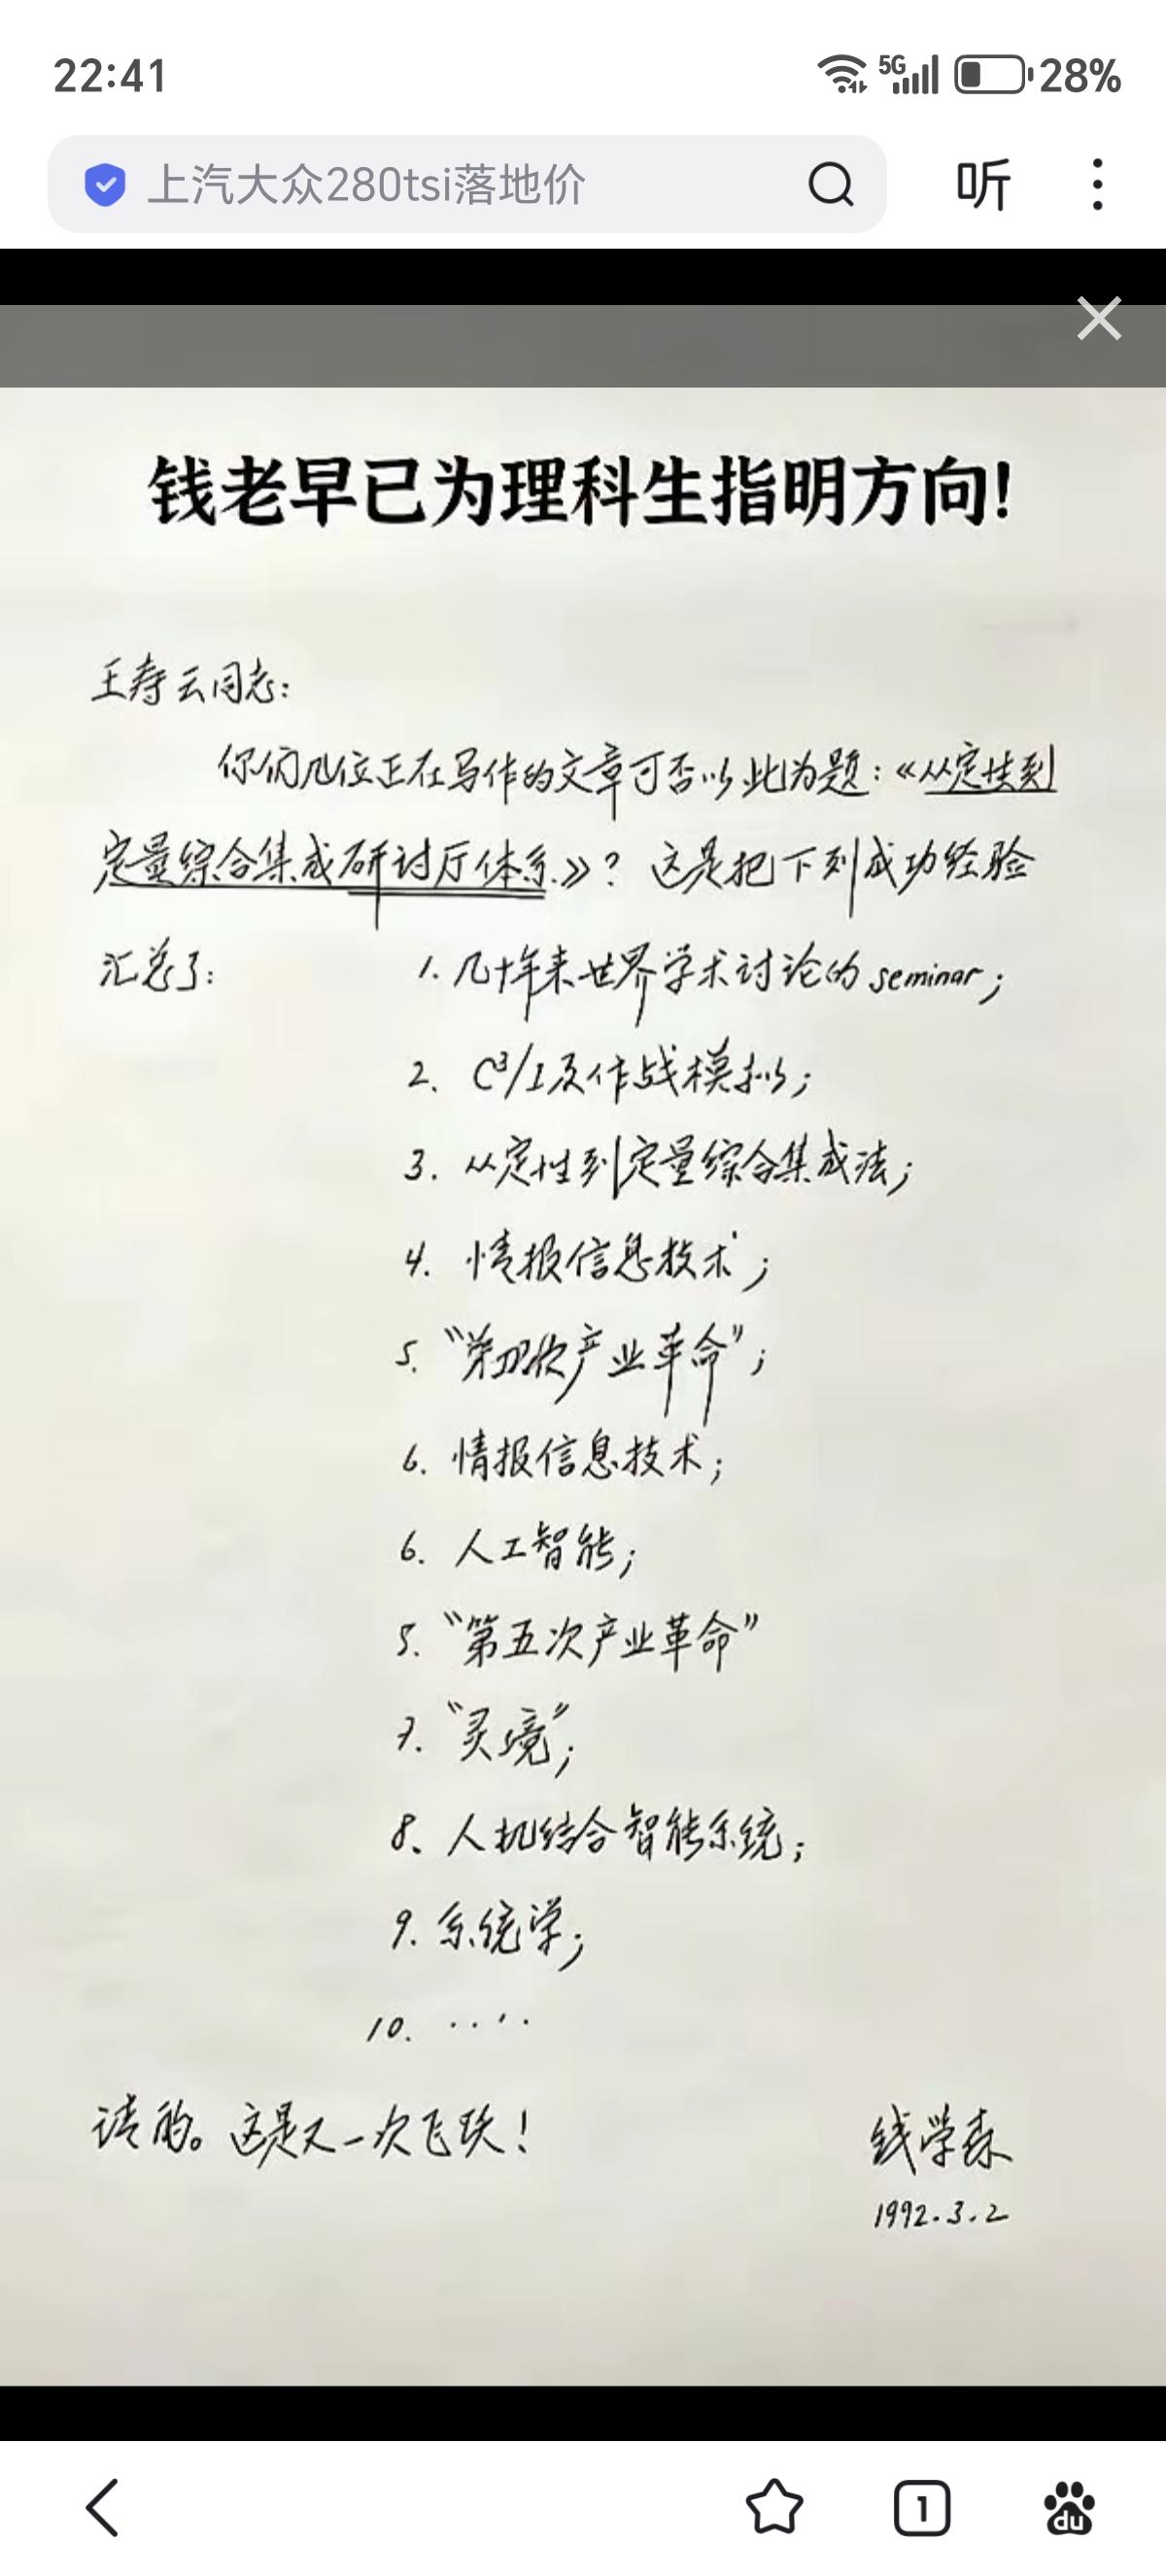 22:41
5G
28%
上汽大众280tsi落地价
听
钱老早已为理科生指明方向!
王寿云同志:
你们几位正在写作的文章可否以此为题:《从定性到
定量综合集成研讨厅体系》? 这是把下列成功经验
汇总了:
1. 几十年来世界学术讨论的 seminar;
2. C³/I及作战模拟;
3. 从定性到定量综合集成法;
4. 情报信息技术;
5. “第四次产业革命”;
6. 情报信息技术;
6. 人工智能;
5. “第五次产业革命”
7. “灵境”;
8、人机结合智能系统;
9. 系统学;
10. ....
请酌。这是又一次飞跃!
钱学森
1992.3.2
1
du